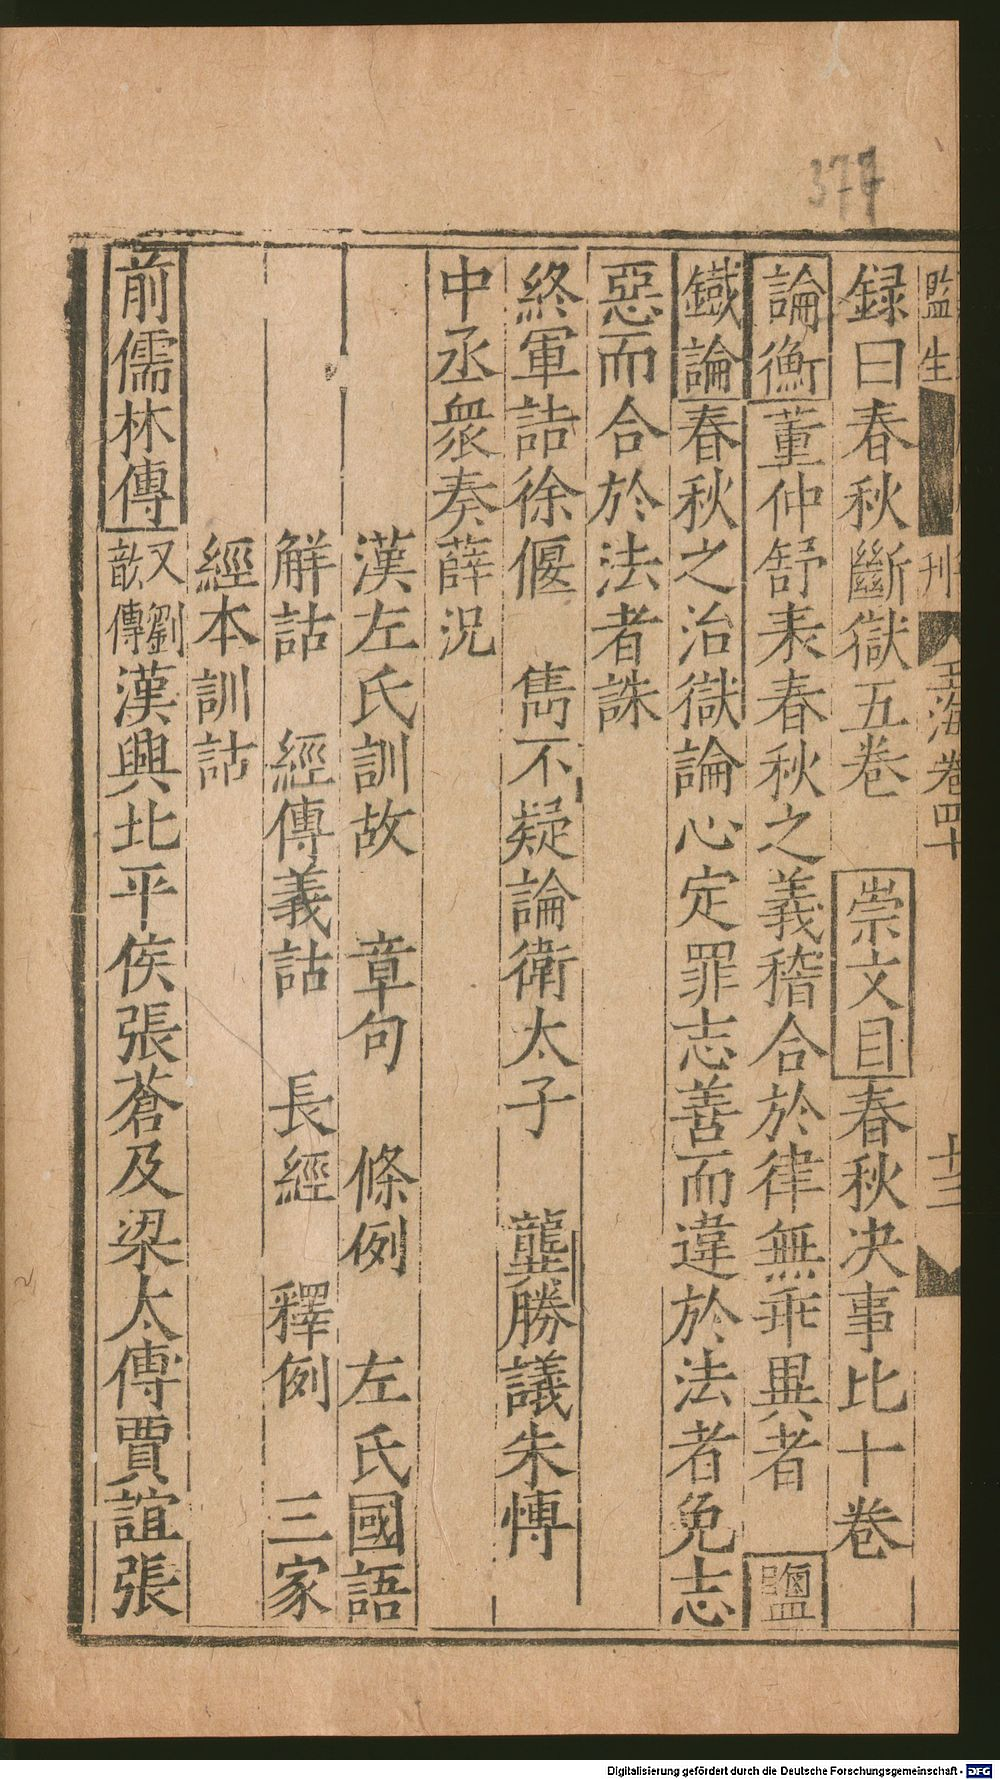 377
監生 刊 玉海卷四十 十二
録曰春秋斷獄五卷 崇文目春秋決事比十卷
論衡董仲舒表春秋之義稽合於律無乖異者 鹽
鐵論春秋之治獄論心定罪志善而違於法者免志
惡而合於法者誅
終軍詰徐偃 雋不疑論衛太子 龔勝議朱愽
中丞衆奏薛況
漢左氏訓故 章句 條例 左氏國語
解詁 經傳義詁 長經 釋例 三家
經本訓詁
前儒林傳又劉歆傳漢興北平侯張蒼及梁太傅賈誼張
Digitalisierung gefördert durch die Deutsche Forschungsgemeinschaft - DFG